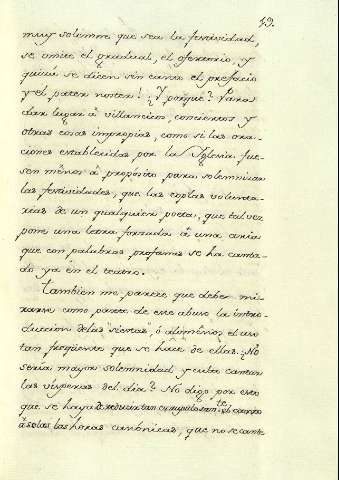 49.
muy solemne que sea la festividad,
se omite el gradual, el ofertorio, y
quizá se dicen sin canto el prefacio
y el pater noster? ¿Y porqué? Para
dar lugar à villancicos, conciertos y
otras cosas impropias, como si las ora-
ciones establecidas por la Iglesia fue-
sen menos à propósito para solemnizar
las festividades, que las coplas volunta-
rias de un qualquier poeta, que tal vez
pone una letra forzada à una aria
que con palabras profanas se ha canta-
do yá en el teatro.
tambien me parece que deben mi-
rarse como parte de este abuso la intro-
duccion de las "siestas" ó alomènos el uso
tan freqüente que se hace de ellas. ¿No
seria mayor solemnidad y culto cantar
las visperas del dia? No digo por esto
que se haya de reducir tan escrupulosamte. el campo
à solas las horas canònicas, que no se cante